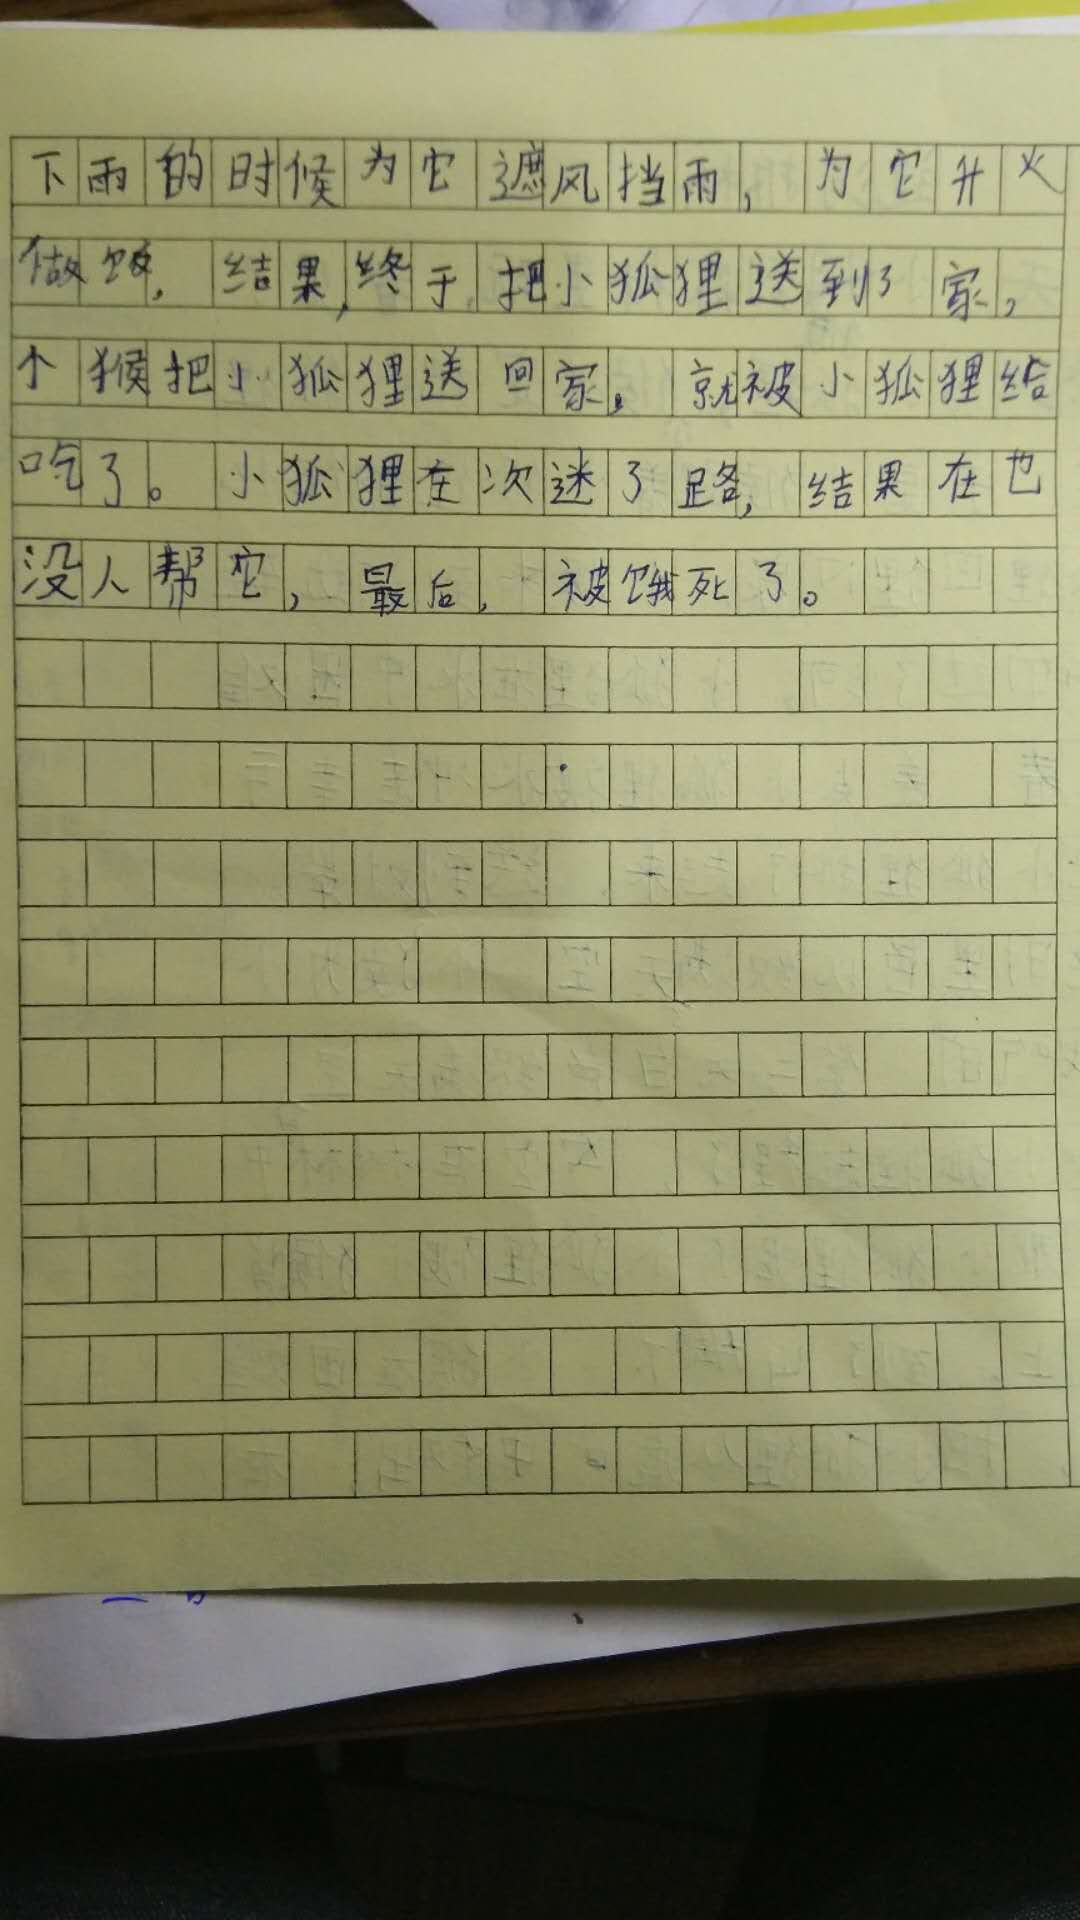 下雨的时候为它遮风挡雨，为它升火
做饭，结果，终于，把小狐狸送到了家，
个猴把小狐狸送回家。就被小狐狸给
吃了。小狐狸在次迷了路，结果在也
没人帮它，最后，被饿死了。